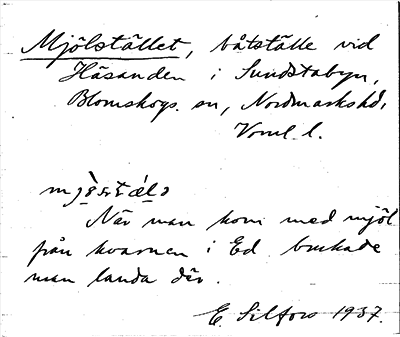 Mjölstället, båtställe vid
Häsanden i Sundstabyn,
Blomskogs sn, Nordmarkshd,
Vrml. l.
När man kom med mjöl
från kvarnen i Ed brukade
man landa där.
E. Silfors 1937.